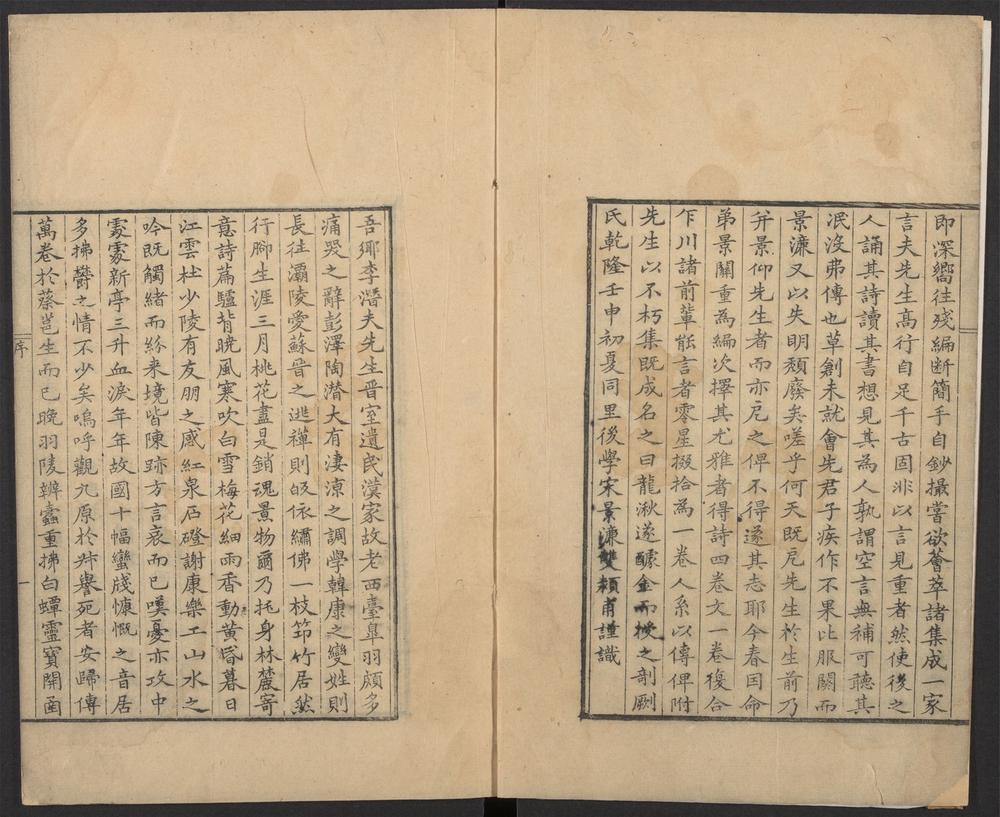 即深嚮往殘編断簡手自鈔撮嘗欲薈萃諸集成一家
言夫先生高行自足千古固非以言見重者然使後之
人誦其詩讀其書想見其為人孰謂空言無補可聽其
泯没弗傳也草創未就會先君子疾作不果比服闋而
景濂又以失明頽廢矣嗟乎何天既戹先生於生前乃
并景仰先生者而亦戹之俾不得遂其志耶今春囯命
弟景關重為編次擇其尤雅者得詩四卷文一卷復合
乍川諸前輩能言者零星掇拾為一卷人系以傳俾附
先生以不朽集既成名之曰龍湫遂醵金而授之剞劂
氏乾隆壬申初夏同里後學宋景濂雙頬甫謹識
吾郷李潛夫先生晋室遺民漢家故老西臺皐羽頗多
痛哭之辭彭澤陶潛大有淒涼之調學韓康之變姓則
長往灞陵愛蘇晋之逃禪則皈依繡佛一枝笻竹居然
行腳生涯三月桃花盡是銷魂景物爾乃托身林麓寄
意詩篇驢背曉風寒吹白雪梅花細雨香動黄昏暮日
江雲杜少陵有友朋之感紅泉石磴謝康樂工山水之
吟既觸緒而紛来境皆陳跡方言哀而已嘆憂亦攻中
䖏䖏新亭三升血淚年年故國十幅蠻牋慷慨之音居
多拂欝之情不少矣嗚呼觀九原於叔譽死者安歸傳
萬卷於蔡邕生而已晚羽陵辨蠹重拂白蟫靈寶開函
序
一